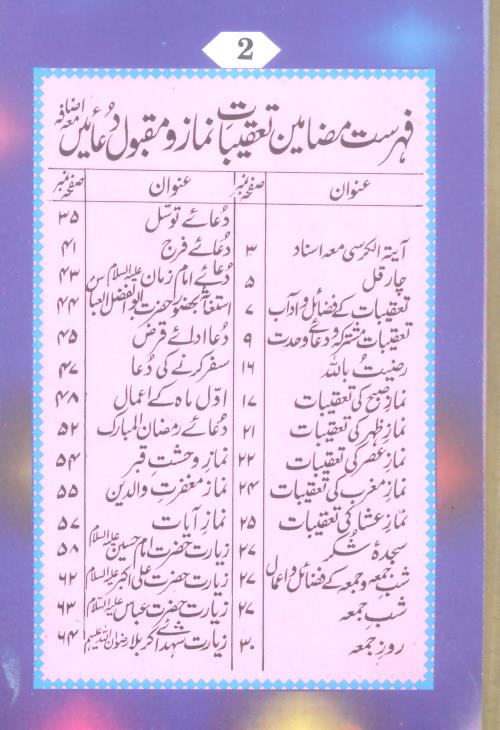 2
فہرست مضامین تعقیبات نماز و مقبول دُعائیں معہ اضافہ
عنوان صفحہ نمبر
آیتہ الکرسی معہ اسناد ۳
چار قل ۵
تعقیبات کے فضائل و آداب ۷
تعقیبات مشترکہ و دعائے وحدت ۹
رضیتُ باللہ ۱۶
نماز صبح کی تعقیبات ۱۷
نماز ظہر کی تعقیبات ۲۱
نماز عصر کی تعقیبات ۲۲
نماز مغرب کی تعقیبات ۲۴
نماز عشاء کی تعقیبات ۲۵
سجدۂ شکر ۲۷
شب جمعہ و جمعہ کے فضائل و اعمال ۲۷
شب جمعہ ۲۷
روز جمعہ ۳۰
عنوان صفحہ نمبر
دُعائے توسّل ۳۵
دُعائے فرج ۴۱
دُعائے امام زمان علیہ السلام ۴۳
استغاثہ بحضور حضرت ابوالفضل العباس ۴۴
دُعا ادائے قرض ۴۵
سفر کرنے کی دُعا ۴۷
اوّل ماہ کے اعمال ۴۸
دُعائے رمضان المبارک ۵۲
نمازِ وحشت قبر ۵۴
نماز مغفرتِ والدین ۵۵
نمازِ آیات ۵۷
زیارت حضرت امام حسین علیہ السلام ۵۸
زیارت حضرت علی اکبر علیہ السلام ۶۲
زیارت حضرت عباس علیہ السلام ۶۳
زیارت شہدائے کربلا رضوان اللہ علیہم ۶۴